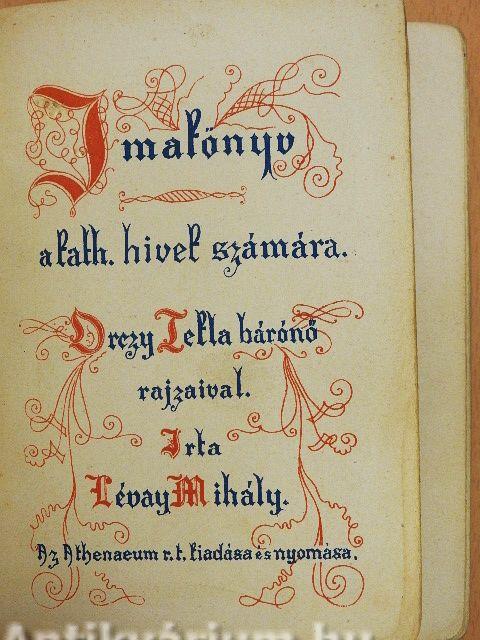 Imakönyv
a kath. hivek számára.
Orczy Tekla bárónő
rajzaival.
Irta
Lévay Mihály.
Az Athenaeum r. t. kiadása és nyomása.
Antikvárium.hu